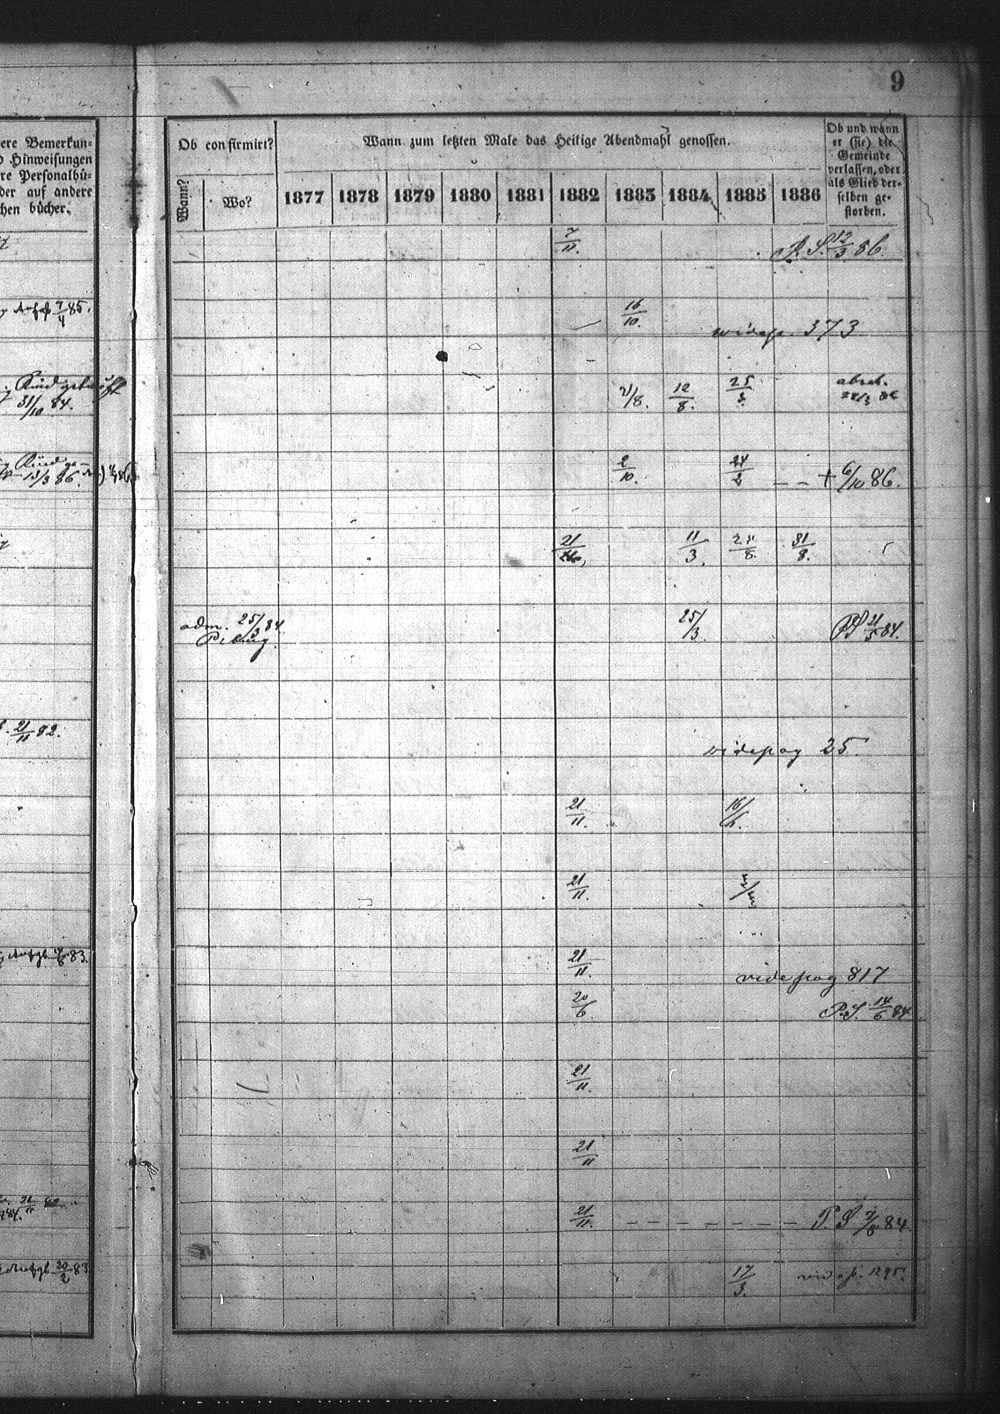 9
ere Bemerkun-
o Hinweisungen
re Personalbü-
der auf andere
hen bücher.
Ob confirmirt?
Wann zum letzten Male das Heilige Abendmahl genossen.
Ob und wann
er (sie) die
Gemeinde
verlassen, oder
als Glied der-
selben ge-
storben.
Wann?
Wo?
1877 1878 1879 1880 1881 1882 1883 1884 1885 1886
7/11. P. S. 12/3 86.
7/4 85.
16/10. vide p. 373
31/10 84.
7/8. 12/8. 25/3.
2/10. 24/2 – – + 6/10 86.
21/11, 11/3. 24/8. 31/8.
adm. 25/3 84. 25/3. PS 21/5 84.
21/11 82.
vide pag 25
21/11. 16/6.
21/11.
83. 21/11. vide pag 817
20/6. P.S. 14/6 84
21/11.
21/11
21/11. – – – – – – – P. S 7/8 84
20/2 83 17/3. vide p. 1295.